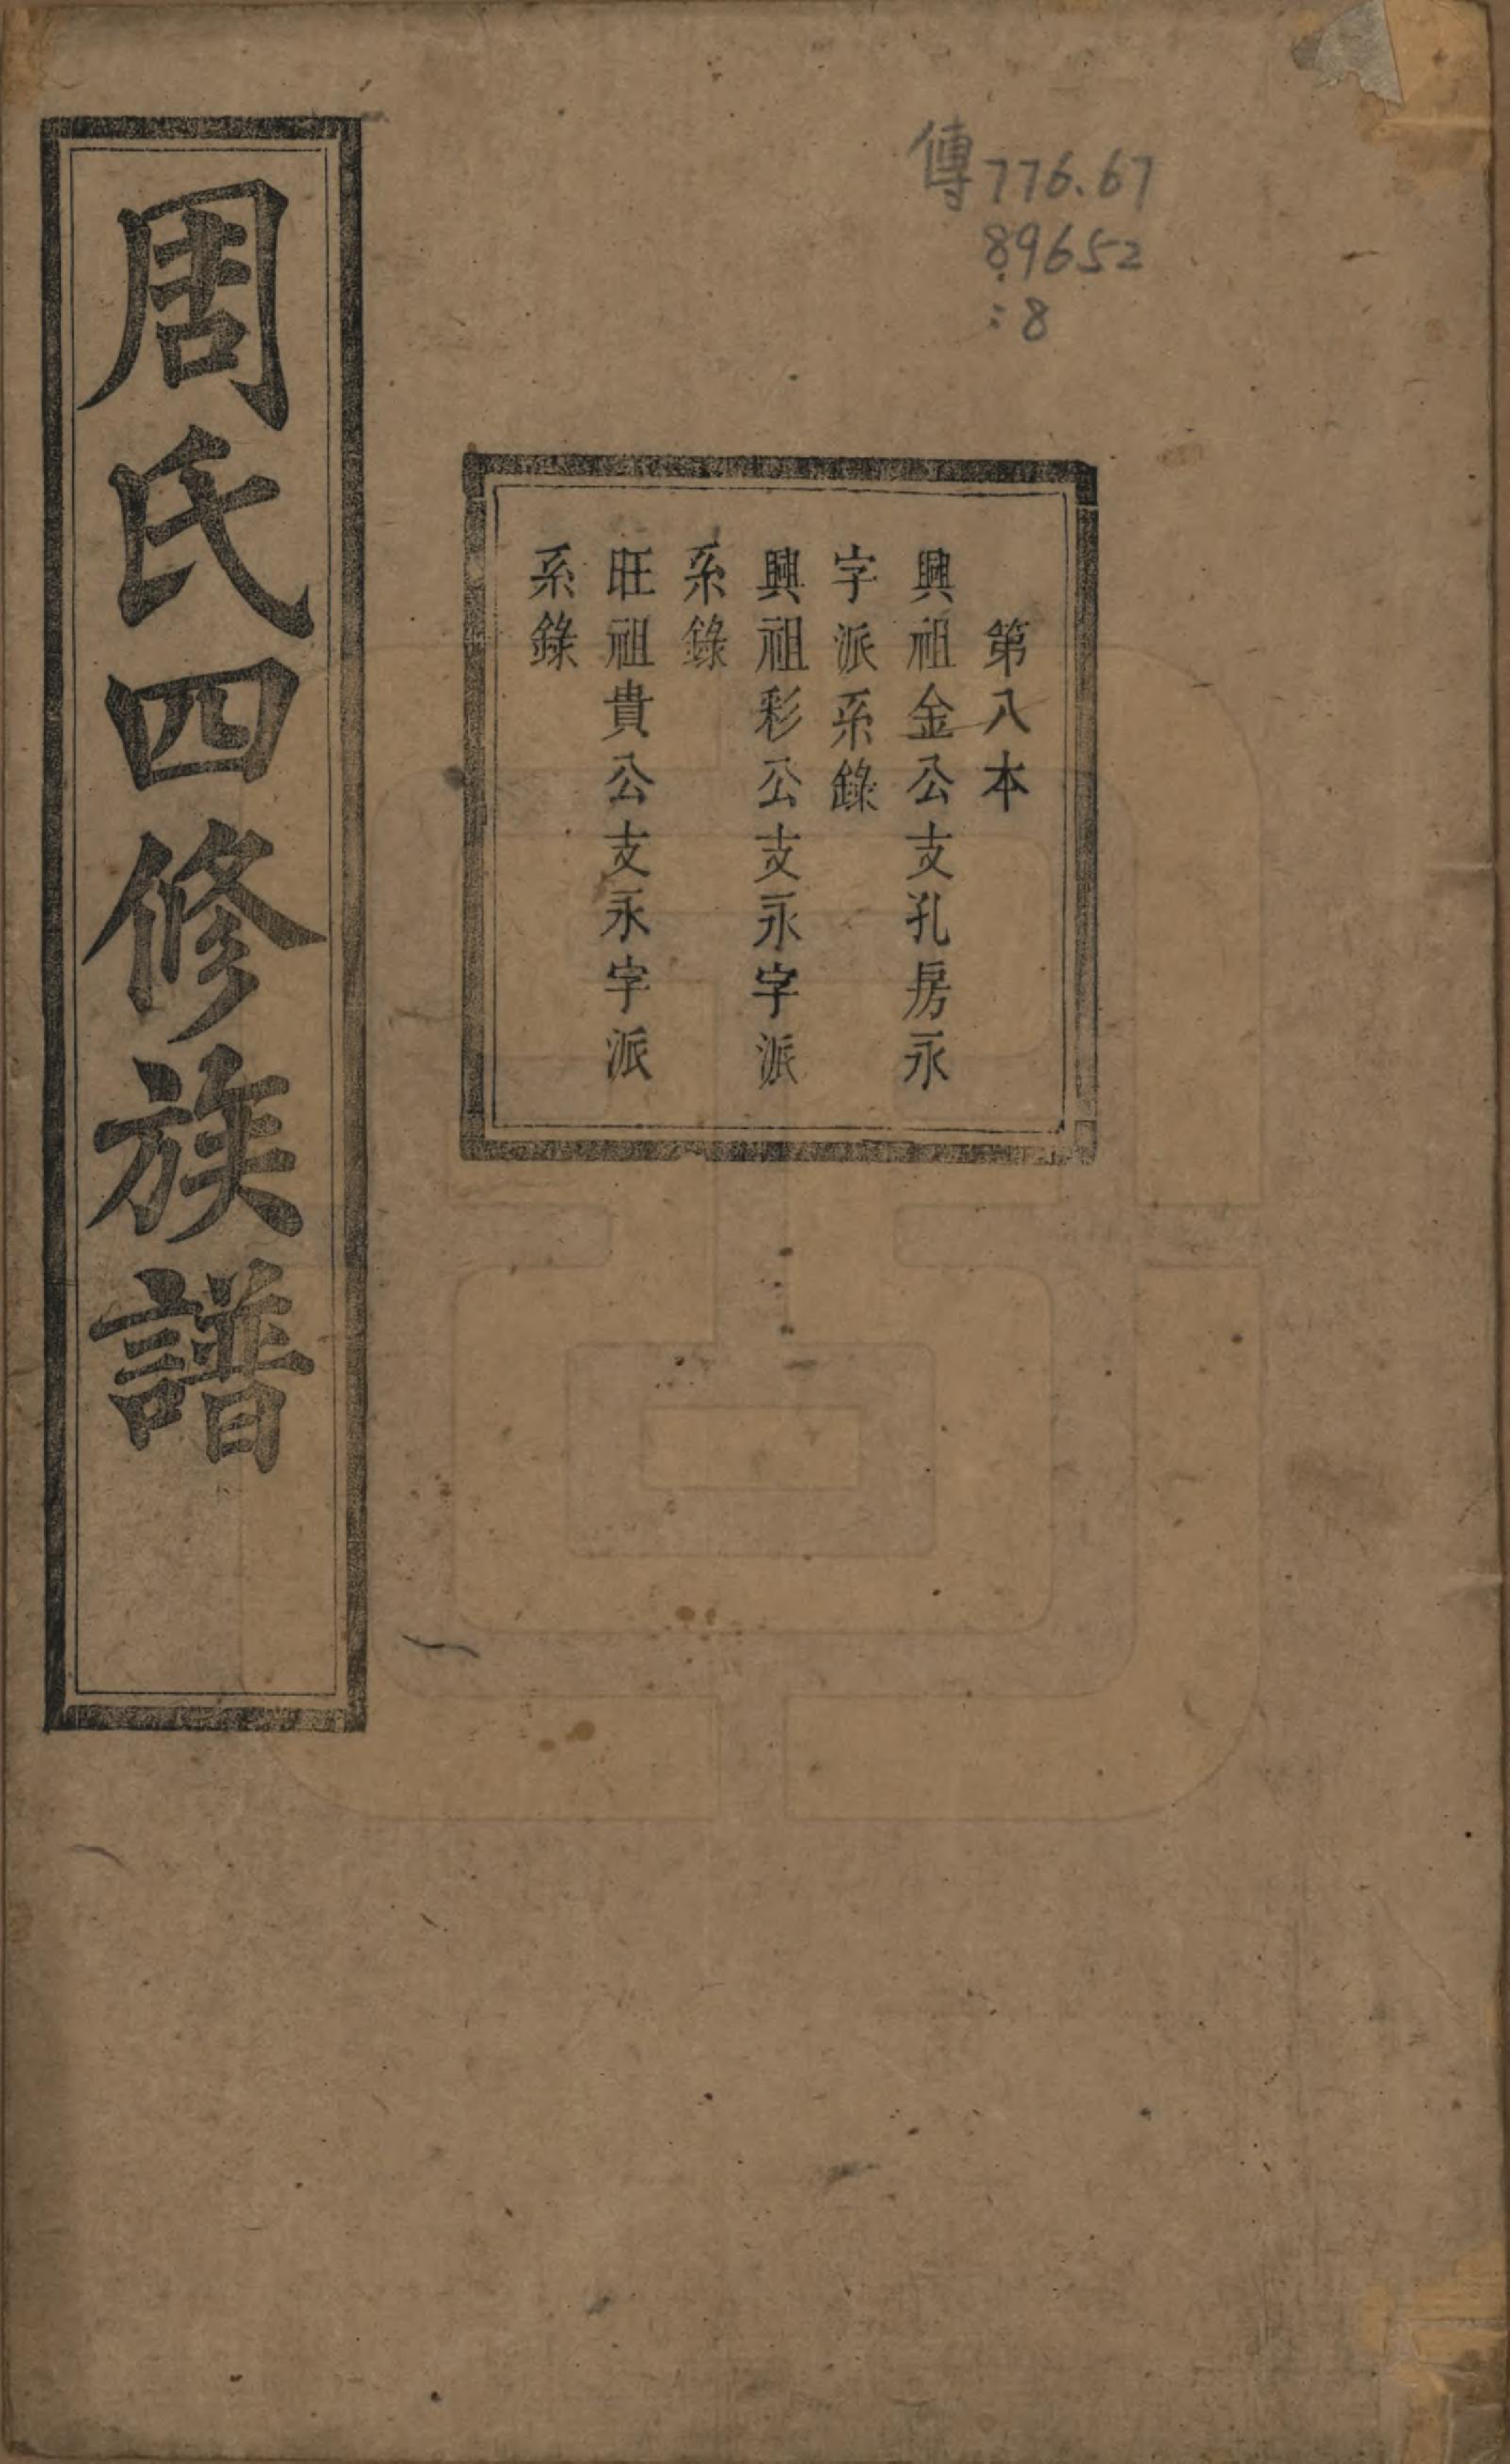 傳776.67
89652
:8
第八本
興祖金公支孔房永
字派系錄
興祖彩公支永字派
系錄
旺祖貴公支永字派
系錄
周氏四修族譜